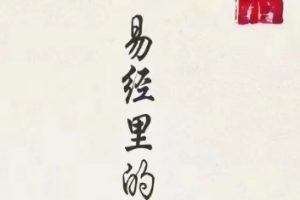 易经里的